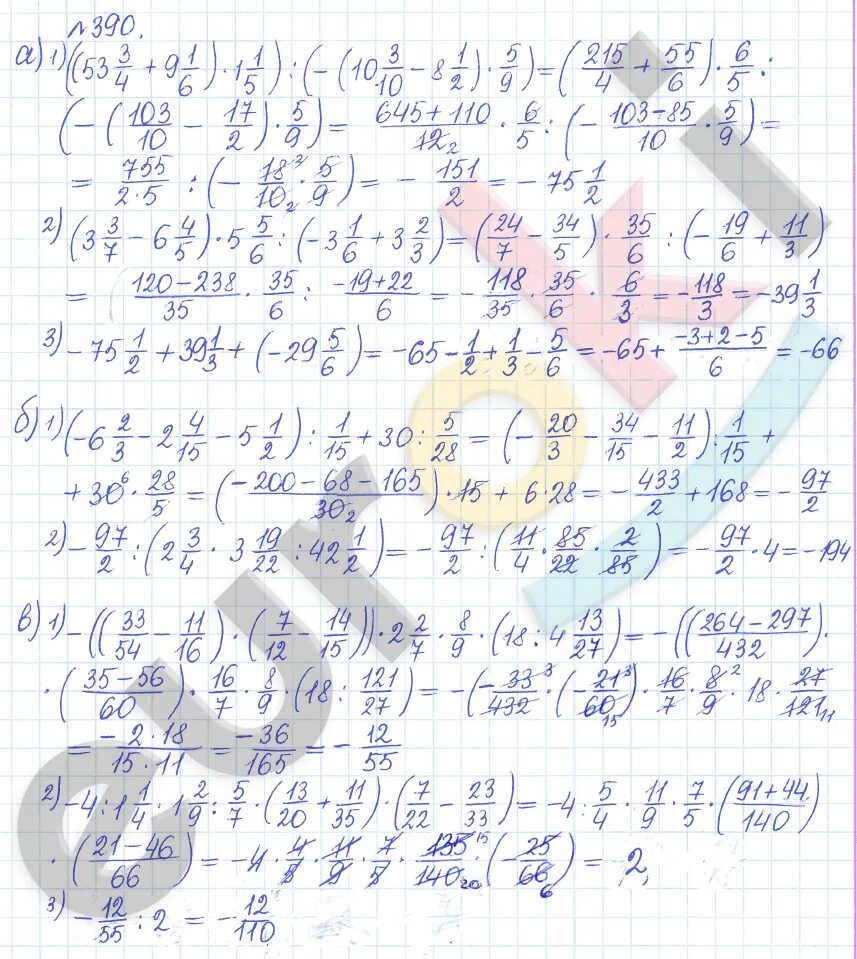 №390.
а) 1) ((53 3/4 + 9 1/6) · 1 1/5) : (-(10 3/10 - 8 1/2) · 5/9) = (215/4 + 55/6) · 6/5 :
(-(103/10 - 17/2) · 5/9) = 645+110/12₂ · 6/5 : (- 103-85/10 · 5/9) =
= 755/2·5 : (- 18²/10₂ · 5/9) = - 151/2 = -75 1/2
2) (3 3/7 - 6 4/5) · 5 5/6 : (-3 1/6 + 3 2/3) = (24/7 - 34/5) · 35/6 : (- 19/6 + 11/3)
= 120-238/35 · 35/6 : -19+22/6 = - 118/35 · 35/6 · 6/3 = - 118/3 = -39 1/3
3) -75 1/2 + 39 1/3 + (-29 5/6) = -65 - 1/2 + 1/3 - 5/6 = -65 + -3+2-5/6 = -66
б) 1) (-6 2/3 - 2 4/15 - 5 1/2) : 1/15 + 30 : 5/28 = (- 20/3 - 34/15 - 11/2) : 1/15 +
+ 30⁶ · 28/5 = (-200-68-165/30₂) · 15 + 6·28 = - 433/2 + 168 = - 97/2
2) - 97/2 : (2 3/4 · 3 19/22 : 42 1/2) = - 97/2 : (11/4 · 85/22 · 2/85) = - 97/2 · 4 = -194
в) 1) -((33/54 - 11/16) · (7/12 - 14/15)) · 2 2/7 · 8/9 · (18 : 4 13/27) = -((264-297/432) ·
· (35-56/60) · 16/7 · 8/9 · (18 : 121/27) = -(-33³/432 · (-21³/60₁₅) · 16/7 · 8²/9 · 18 · 27/121₁₁
= -2·18/15·11 = -36/165 = - 12/55
2) -4 : 1 1/4 · 1 2/9 : 5/7 · (13/20 + 11/35) · (7/22 - 23/33) = -4 : 5/4 · 11/9 · 7/5 · (91+44/140)
· (21-46/66) = -4 4/5 · 11/9 · 7/5 · 135¹⁵/140₂₀ · (- 25/66₆) = 2,
3) - 12/55 : 2 = - 12/110
euroki